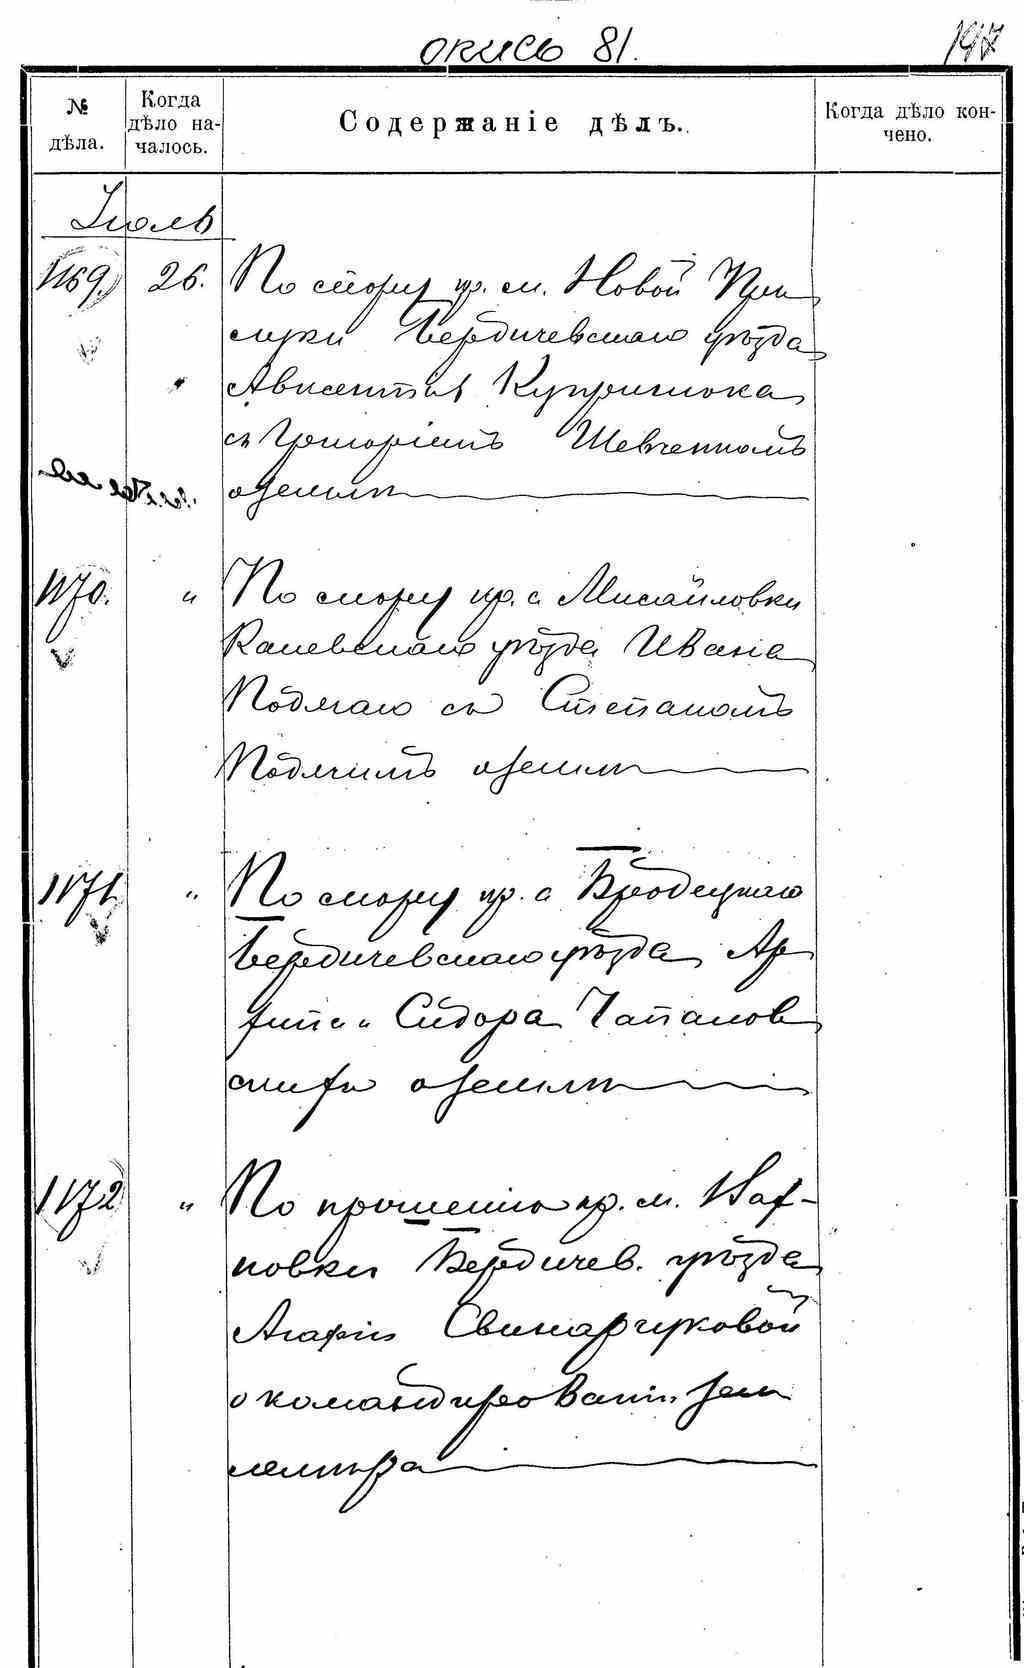 опись 81.
197
№ дѣла.
Когда дѣло началось.
Содержаніе дѣлъ.
Когда дѣло кончено.
Іюль
1169. 26. По спору кр. м. Новой При
луки Бердичевскаго уѣзда
Авксентія Купріянюка
съ Григоріемъ Шевченкомъ
о земли
1170. " По спору кр. с. Мисайловки
Каневскаго уѣзда Ивана
Подмаго съ Степаномъ
о земли
1171. " По спору кр. с. Бродецкаго
Бердичевскаго уѣзда Ар
хипа и Сидора Чапанов
скихъ о земли
1172 " По прошенію кр. м. Нах-
новки Бердичев. уѣзда
Агафіи Свинарчуковой
о командированіи зем
лемѣра